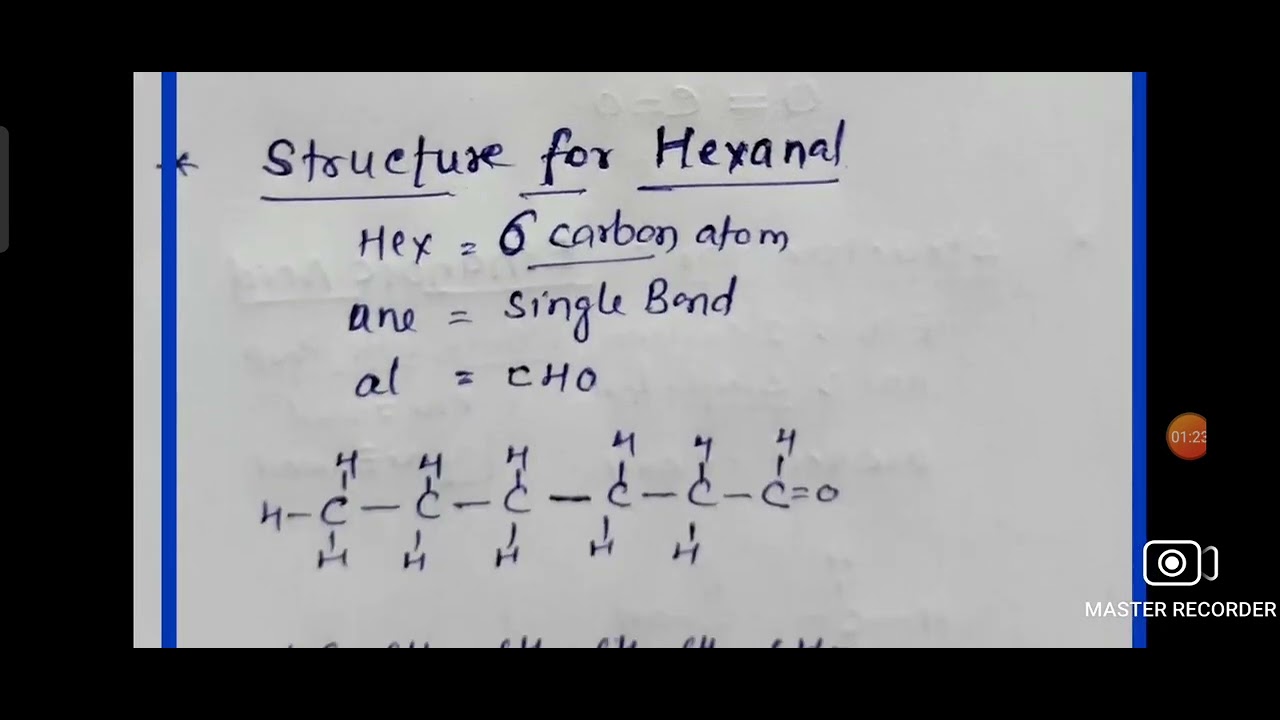 * Structure for Hexanal
Hex = 6 carbon atom
ane = Single Bond
al = CHO
H H H H H H
H-C-C-C-C-C-C=O
H H H H H
01:23
MASTER RECORDER